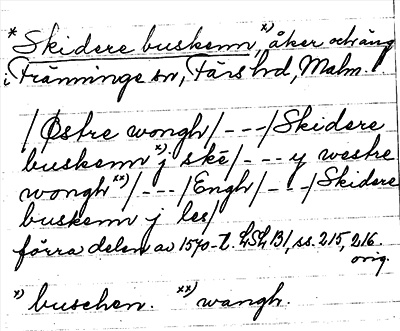 * Skidere buskenn,ˣ⁾ åker och äng
i Tränninge sn, Färs hd, Malm.
/Østre wongh/---/Skidere
buskennˣ⁾ j skē/---y westre
wonghˣˣ⁾/---/Engh/---/Skidere
buskenn j les/
förra delen av 1570-t. LSLB1, ss. 215, 216.
orig.
ˣ⁾ buschen. ˣˣ⁾ wangh.